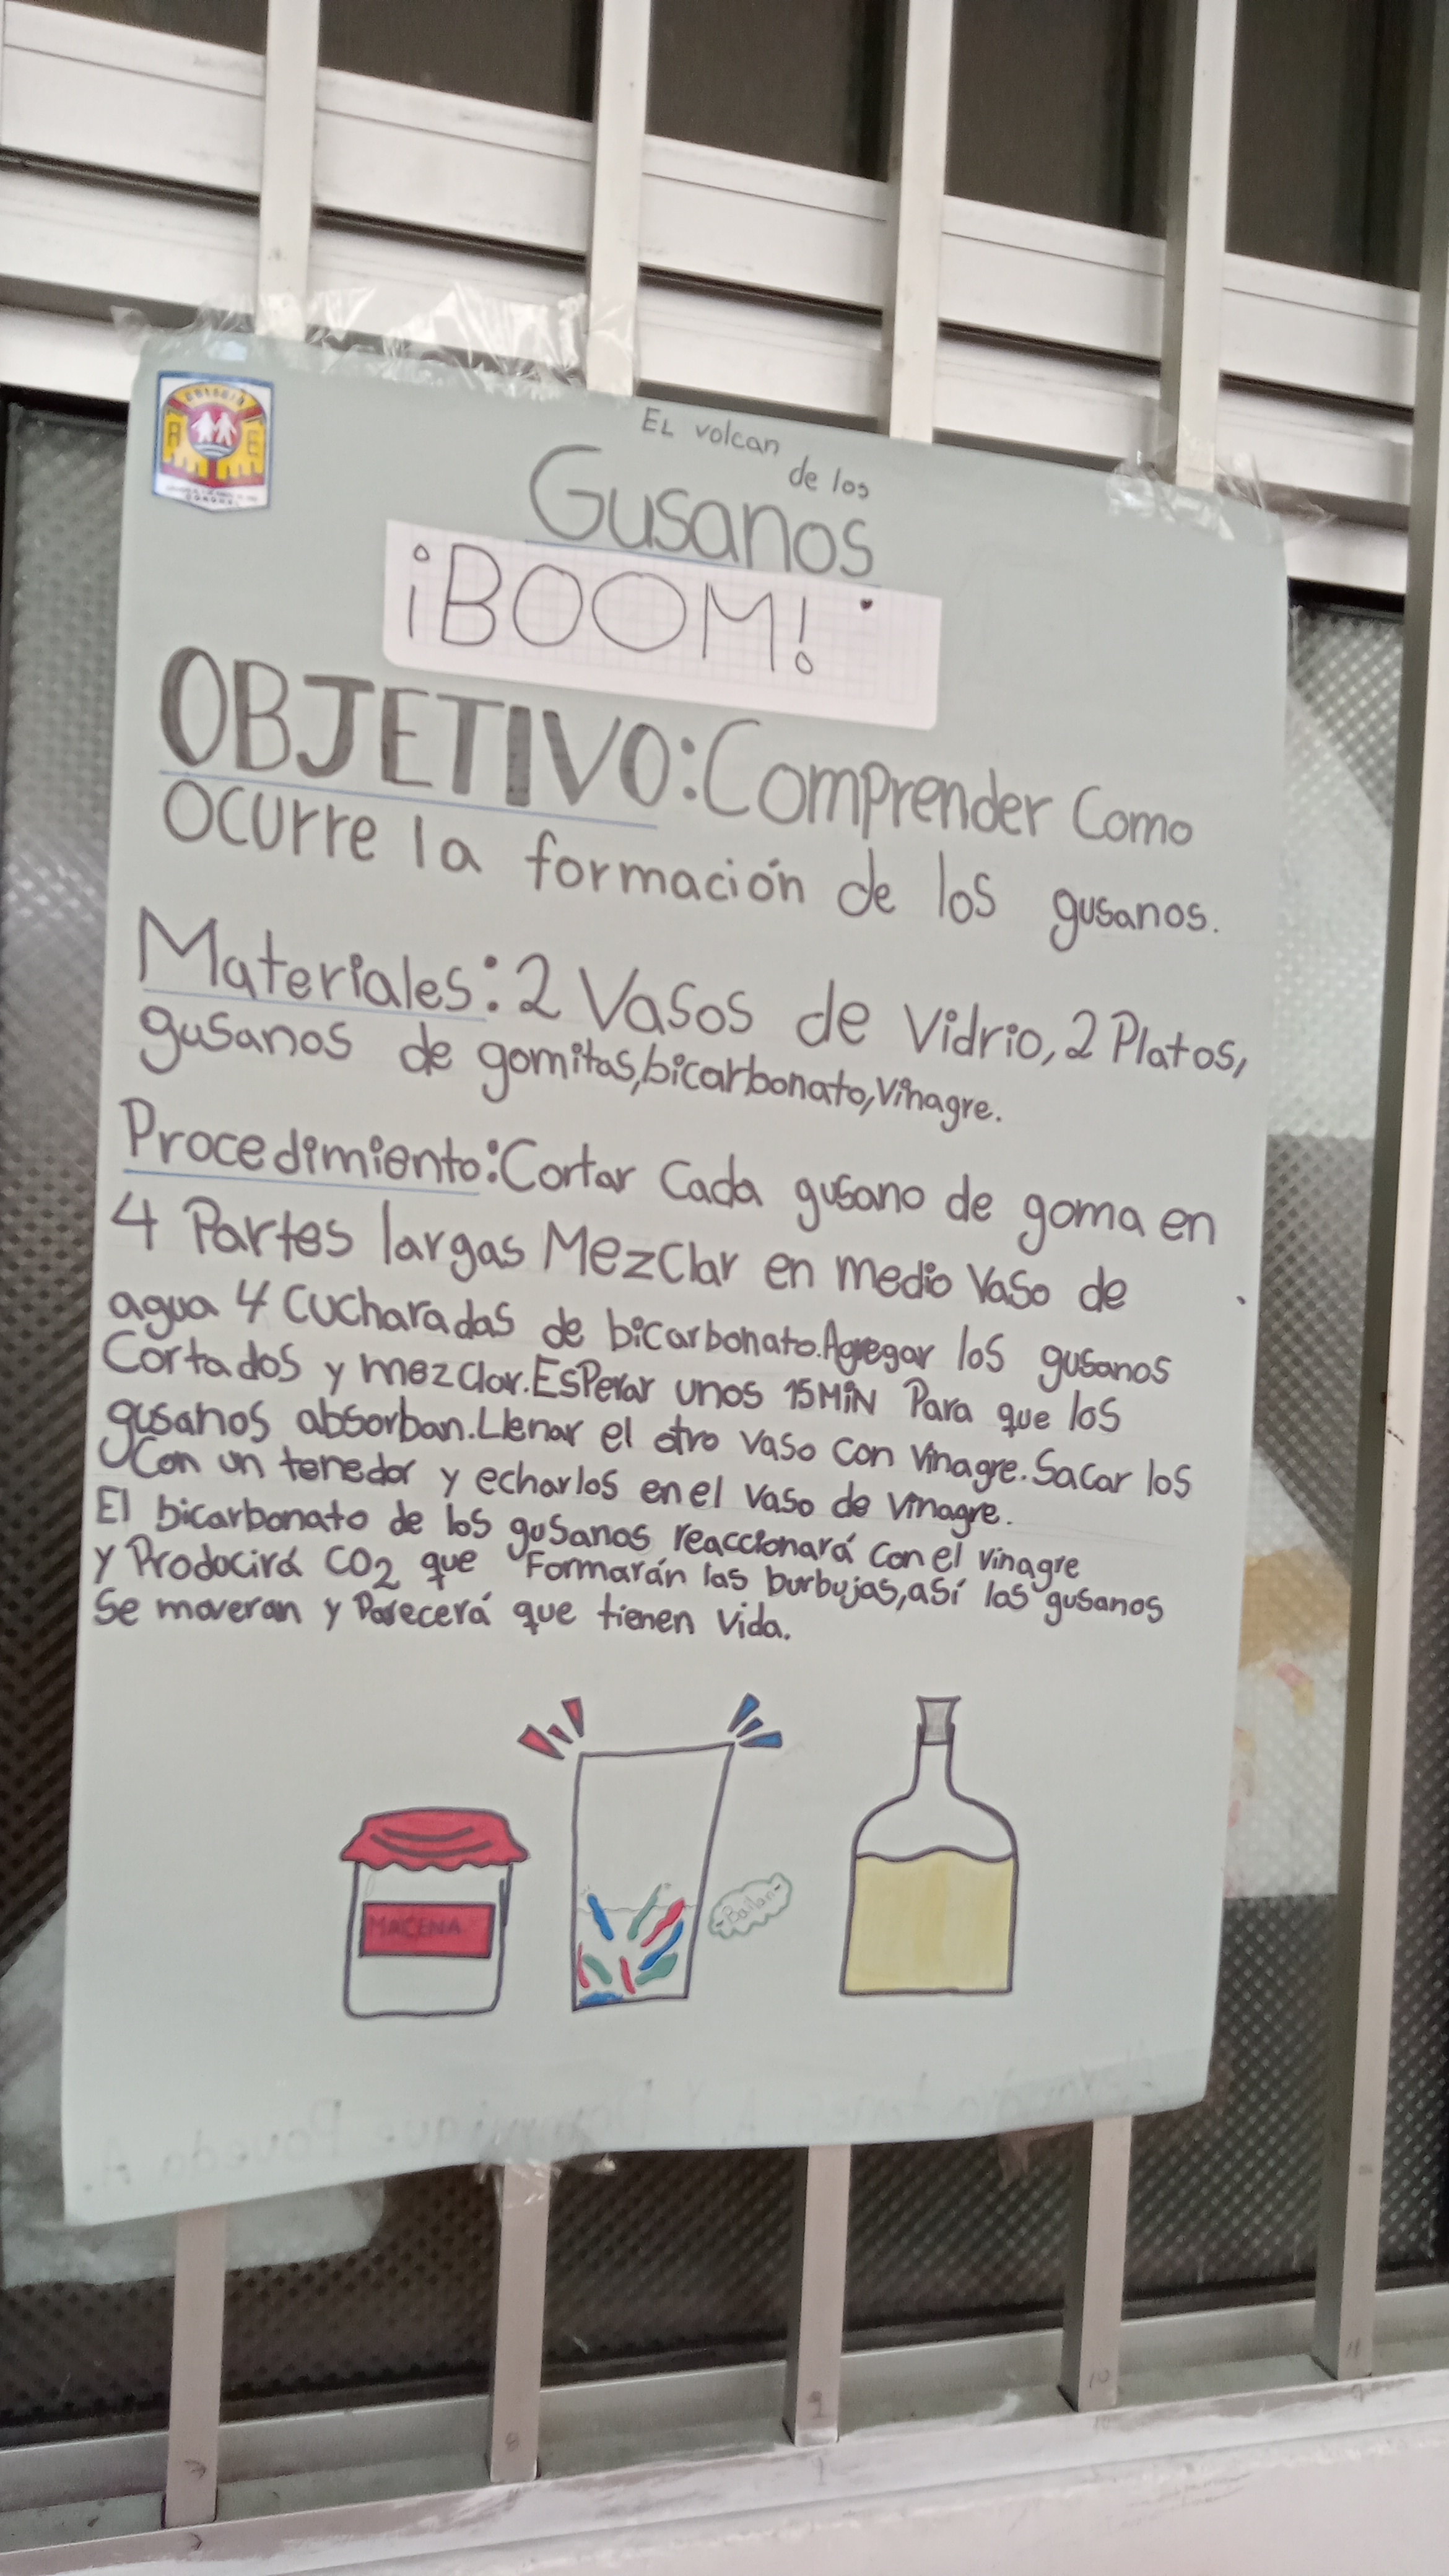 COLEGIO
R E
CORONEL
EL volcan
de los
Gusanos
¡BOOM!
OBJETIVO: Comprender Como
ocurre la formación de los gusanos.
Materiales: 2 Vasos de Vidrio, 2 Platos,
gusanos de gomitas, bicarbonato, Vinagre.
Procedimiento: Cortar Cada gusano de goma en
4 Partes largas Mezclar en medio Vaso de
agua 4 Cucharadas de bicarbonato. Agregar los gusanos
Cortados y mezclar. Esperar unos 15 MiN Para que los
gusanos absorban. Llenar el otro vaso con vinagre. Sacar los
Con un tenedor y echarlos en el vaso de vinagre.
El bicarbonato de los gusanos reaccionará con el vinagre
y Producirá CO2 que Formarán las burbujas, así los gusanos
Se moveran y Parecerá que tienen vida.
-Bailan-
MAICENA
7
8
9
10
11